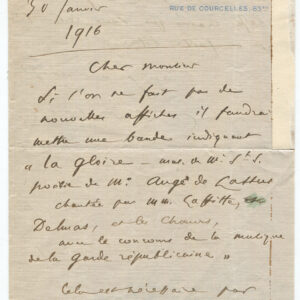 RUE DE COURCELLES. 83 bis
30 Janvier
1916
Cher Monsieur
Si l'on ne fait pas de
nouvelles affiches il faudrait
mettre une bande indiquant
« la gloire — mus. de Mr St. S.
poésie de Mr Augé de Lassus
chantée par MM. Laffitte,
Delmas, et les Chœurs,
avec le concours de la musique
de la garde républicaine »
Cela est nécessaire par